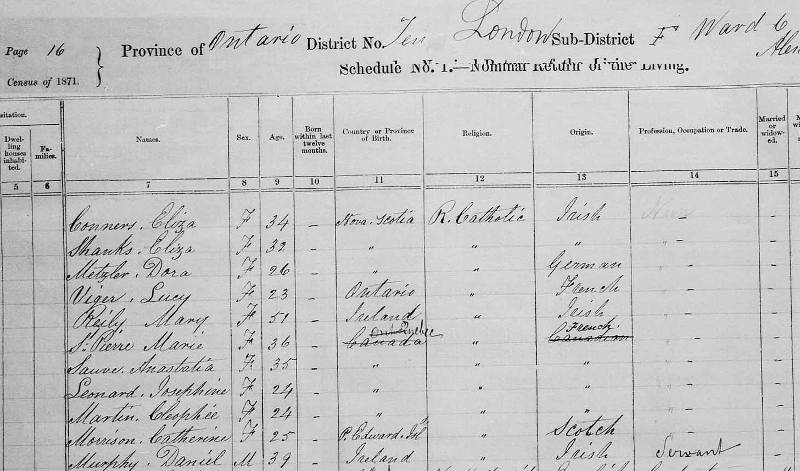 Page 16 Province of Ontario District No. Ten London Sub-District F Ward 6
Census of 1871. Schedule No. 1.—Nominal Return of the Living.
Dwelling houses inhabited. Families. Names. Sex. Age. Born within last twelve months. Country or Province of Birth. Religion. Origin. Profession, Occupation or Trade. Married or widowed.
5 6 7 8 9 10 11 12 13 14 15
Conners. Eliza F 34 – Nova. Scotia R. Catholic Irish –
Shanks. Eliza F 32 – " " " " – –
Metzler. Dora F 26 – " " German " – –
Viger. Lucy F 23 – Ontario " French " – –
Reily Mary F 51 – Ireland " Irish " – –
Quebec French
St. Pierre Marie F 36 – Canada " Canadian " – –
Sauve. Anastatia F 35 – " " " " – –
Leonard. Josephine F 24 – " " " " – –
Martin. Cleophée F 24 – " " " " – –
Morrison. Catherine F 25 – P. Edward. Isl " Scotch " – –
Murphy. Daniel M 39 – Ireland " Irish Servant –